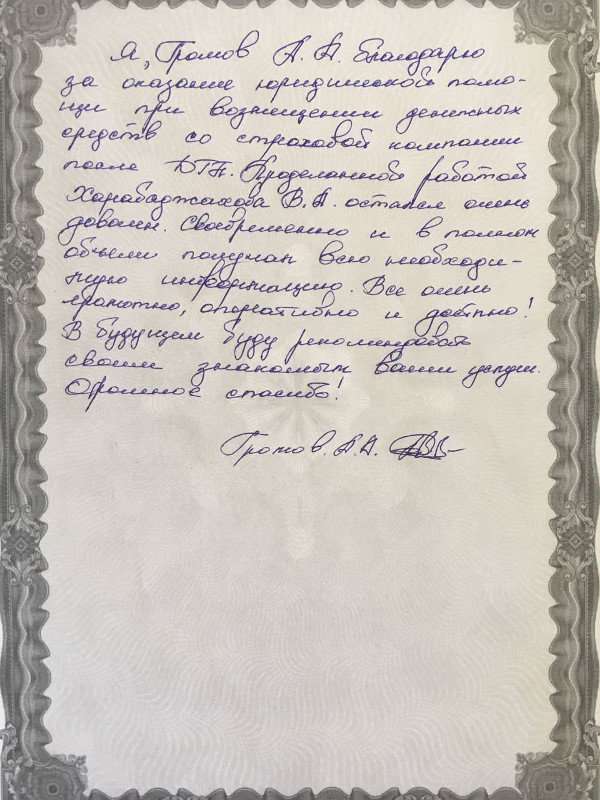 Я, Громов А. А. благодарю
за оказание юридической помо-
щи при возмещении денежных
средств со страховой компании
после ДТП. Проделанной работой
Харабаджахова В.А. остался очень
доволен. Своевременно и в полном
объеме получал всю необходи-
мую информацию. Все очень
грамотно, оперативно и доступно!
В будущем буду рекомендовать
своим знакомым ваши услуги.
Огромное спасибо!
Громов. А.А.